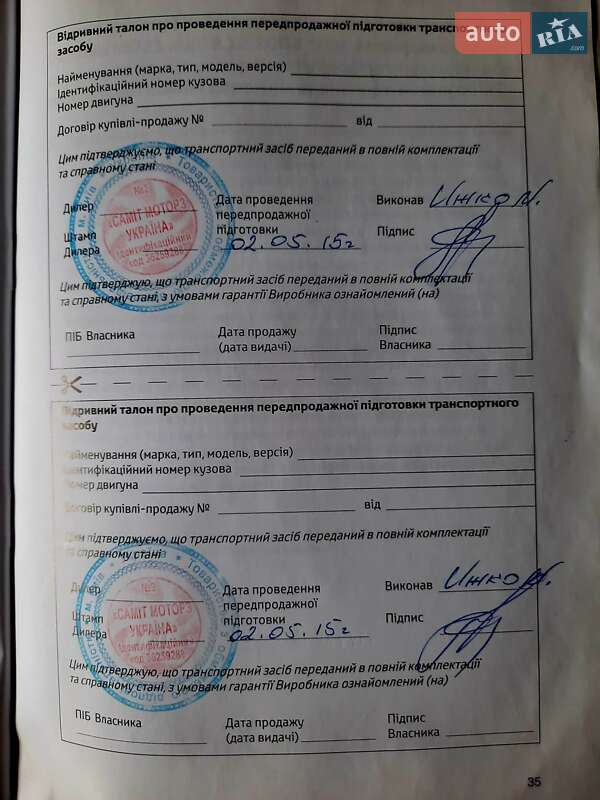 auto RIA.com
Відривний талон про проведення передпродажної підготовки транспортного
засобу
Найменування (марка, тип, модель, версія)
Ідентифікаційний номер кузова
Номер двигуна
Договір купівлі-продажу № від
Цим підтверджуємо, що транспортний засіб переданий в повній комплектації
та справному стані
Дилер
Штамп
Дилера
№2
«САМІТ МОТОРЗ
УКРАЇНА»
Ідентифікаційний
код 36259288
Дата проведення
передпродажної
підготовки 02.05.15г
Виконав Ижко
Підпис
Цим підтверджую, що транспортний засіб переданий в повній комплектації
та справному стані, з умовами гарантії Виробника ознайомлений (на)
ПІБ Власника
Дата продажу
(дата видачі)
Підпис
Власника
Відривний талон про проведення передпродажної підготовки транспортного
засобу
Найменування (марка, тип, модель, версія)
Ідентифікаційний номер кузова
Номер двигуна
Договір купівлі-продажу № від
Цим підтверджуємо, що транспортний засіб переданий в повній комплектації
та справному стані
Дилер
Штамп
Дилера
«САМІТ МОТОРЗ
УКРАЇНА»
Ідентифікаційний
код 36259288
Дата проведення
передпродажної
підготовки 02.05.15г
Виконав Ижко
Підпис
Цим підтверджую, що транспортний засіб переданий в повній комплектації
та справному стані, з умовами гарантії Виробника ознайомлений (на)
ПІБ Власника
Дата продажу
(дата видачі)
Підпис
Власника
35